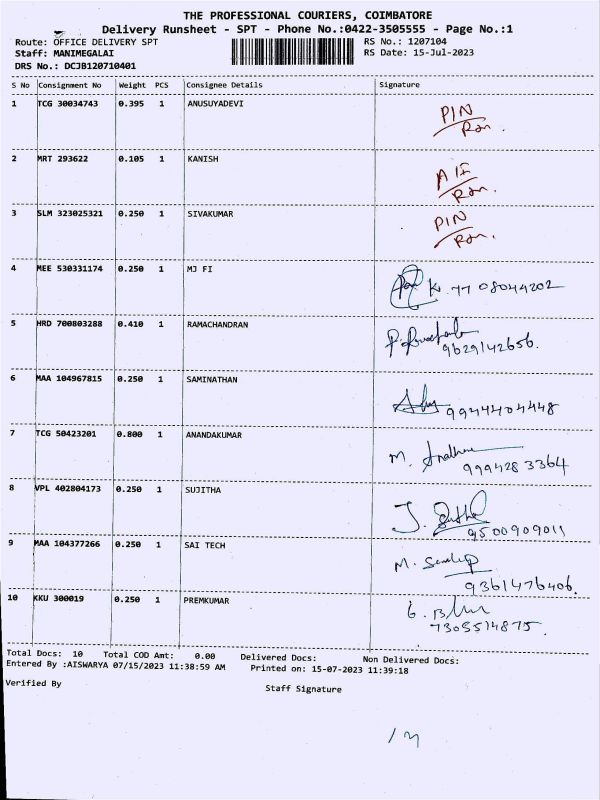 THE PROFESSIONAL COURIERS, COIMBATORE
Delivery Runsheet - SPT - Phone No.:0422-3505555 - Page No.:1
Route: OFFICE DELIVERY SPT RS No.: 1207104
Staff: MANIMEGALAI RS Date: 15-Jul-2023
DRS No.: DCJB120710401
S No Consignment No Weight PCS Consignee Details Signature
1 TCG 30034743 0.395 1 ANUSUYADEVI
PIN
2 MRT 293622 0.105 1 KANISH
3 SLM 323025321 0.250 1 SIVAKUMAR
PIN
4 MEE 530331174 0.250 1 MJ FI
K. 77 08044202
5 HRD 700803288 0.410 1 RAMACHANDRAN
9629142656.
6 MAA 104967815 0.250 1 SAMINATHAN
9944404448
7 TCG 50423201 0.800 1 ANANDAKUMAR
M.
9994283364
8 VPL 402804173 0.250 1 SUJITHA
J.
9500909011
9 MAA 104377266 0.250 1 SAI TECH
M. Sandeep
9361476406.
10 KKU 300019 0.250 1 PREMKUMAR
7305514875.
Total Docs: 10 Total COD Amt: 0.00 Delivered Docs: Non Delivered Docs:
Entered By :AISWARYA 07/15/2023 11:38:59 AM Printed on: 15-07-2023 11:39:18
Verified By Staff Signature